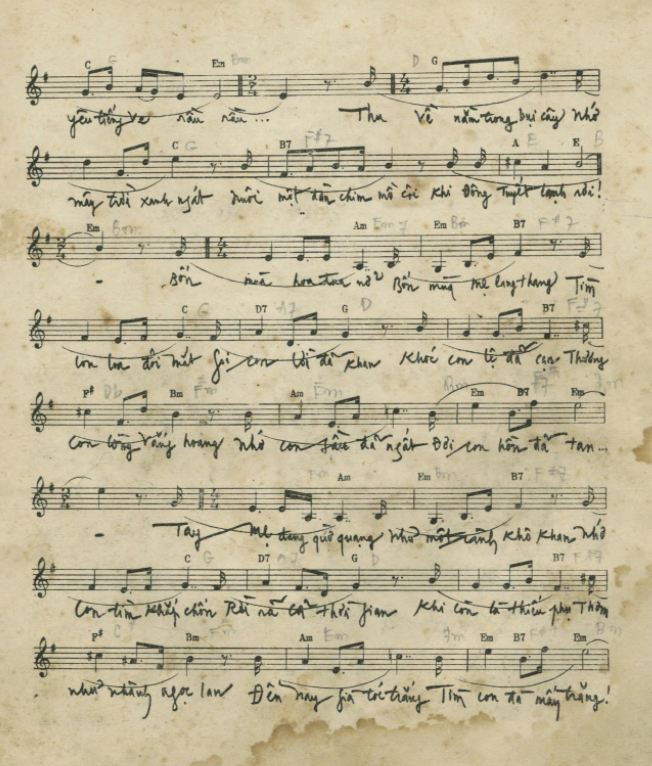 C G Em Bm D G
yêu tiếng ve rầu rầu ... Thu về nằm trong bụi cây Nhớ
C G B7 F#7 A B E B
mây trời xanh ngát Nuôi một đàn chim mồ côi Khi Đông Tuyết lạnh rồi!
Em Bm Am Em7 Em Bm B7 F#7
- Bốn mùa hoa đua nở Bốn mùa mẹ lang thang Tìm
C G D7 A7 G D B7 F#7
con lòa đôi mắt Gọi con lời đã khan Khóc con lệ đã cạn Thương
F# Bm F#m Am Em Bm Em B7 F#7 Em
con lòng vắng hoang Nhớ con đã ngát Đời con hồn đã tan...
Em Am Em Bm B7 F#7
- Tay Mẹ đang quờ quạng Như một cành khô khan Nhớ
C G D7 A7 G D B7 F#7
con tìm khắp chốn Rồi rã cả thời gian Khi còn là thiếu phụ Thơm
F# Bm F#m Am Em Em B7 F#7 Em Bm
như nhành ngọc lan Đến nay già tóc trắng Tìm con đã mấy trăng!